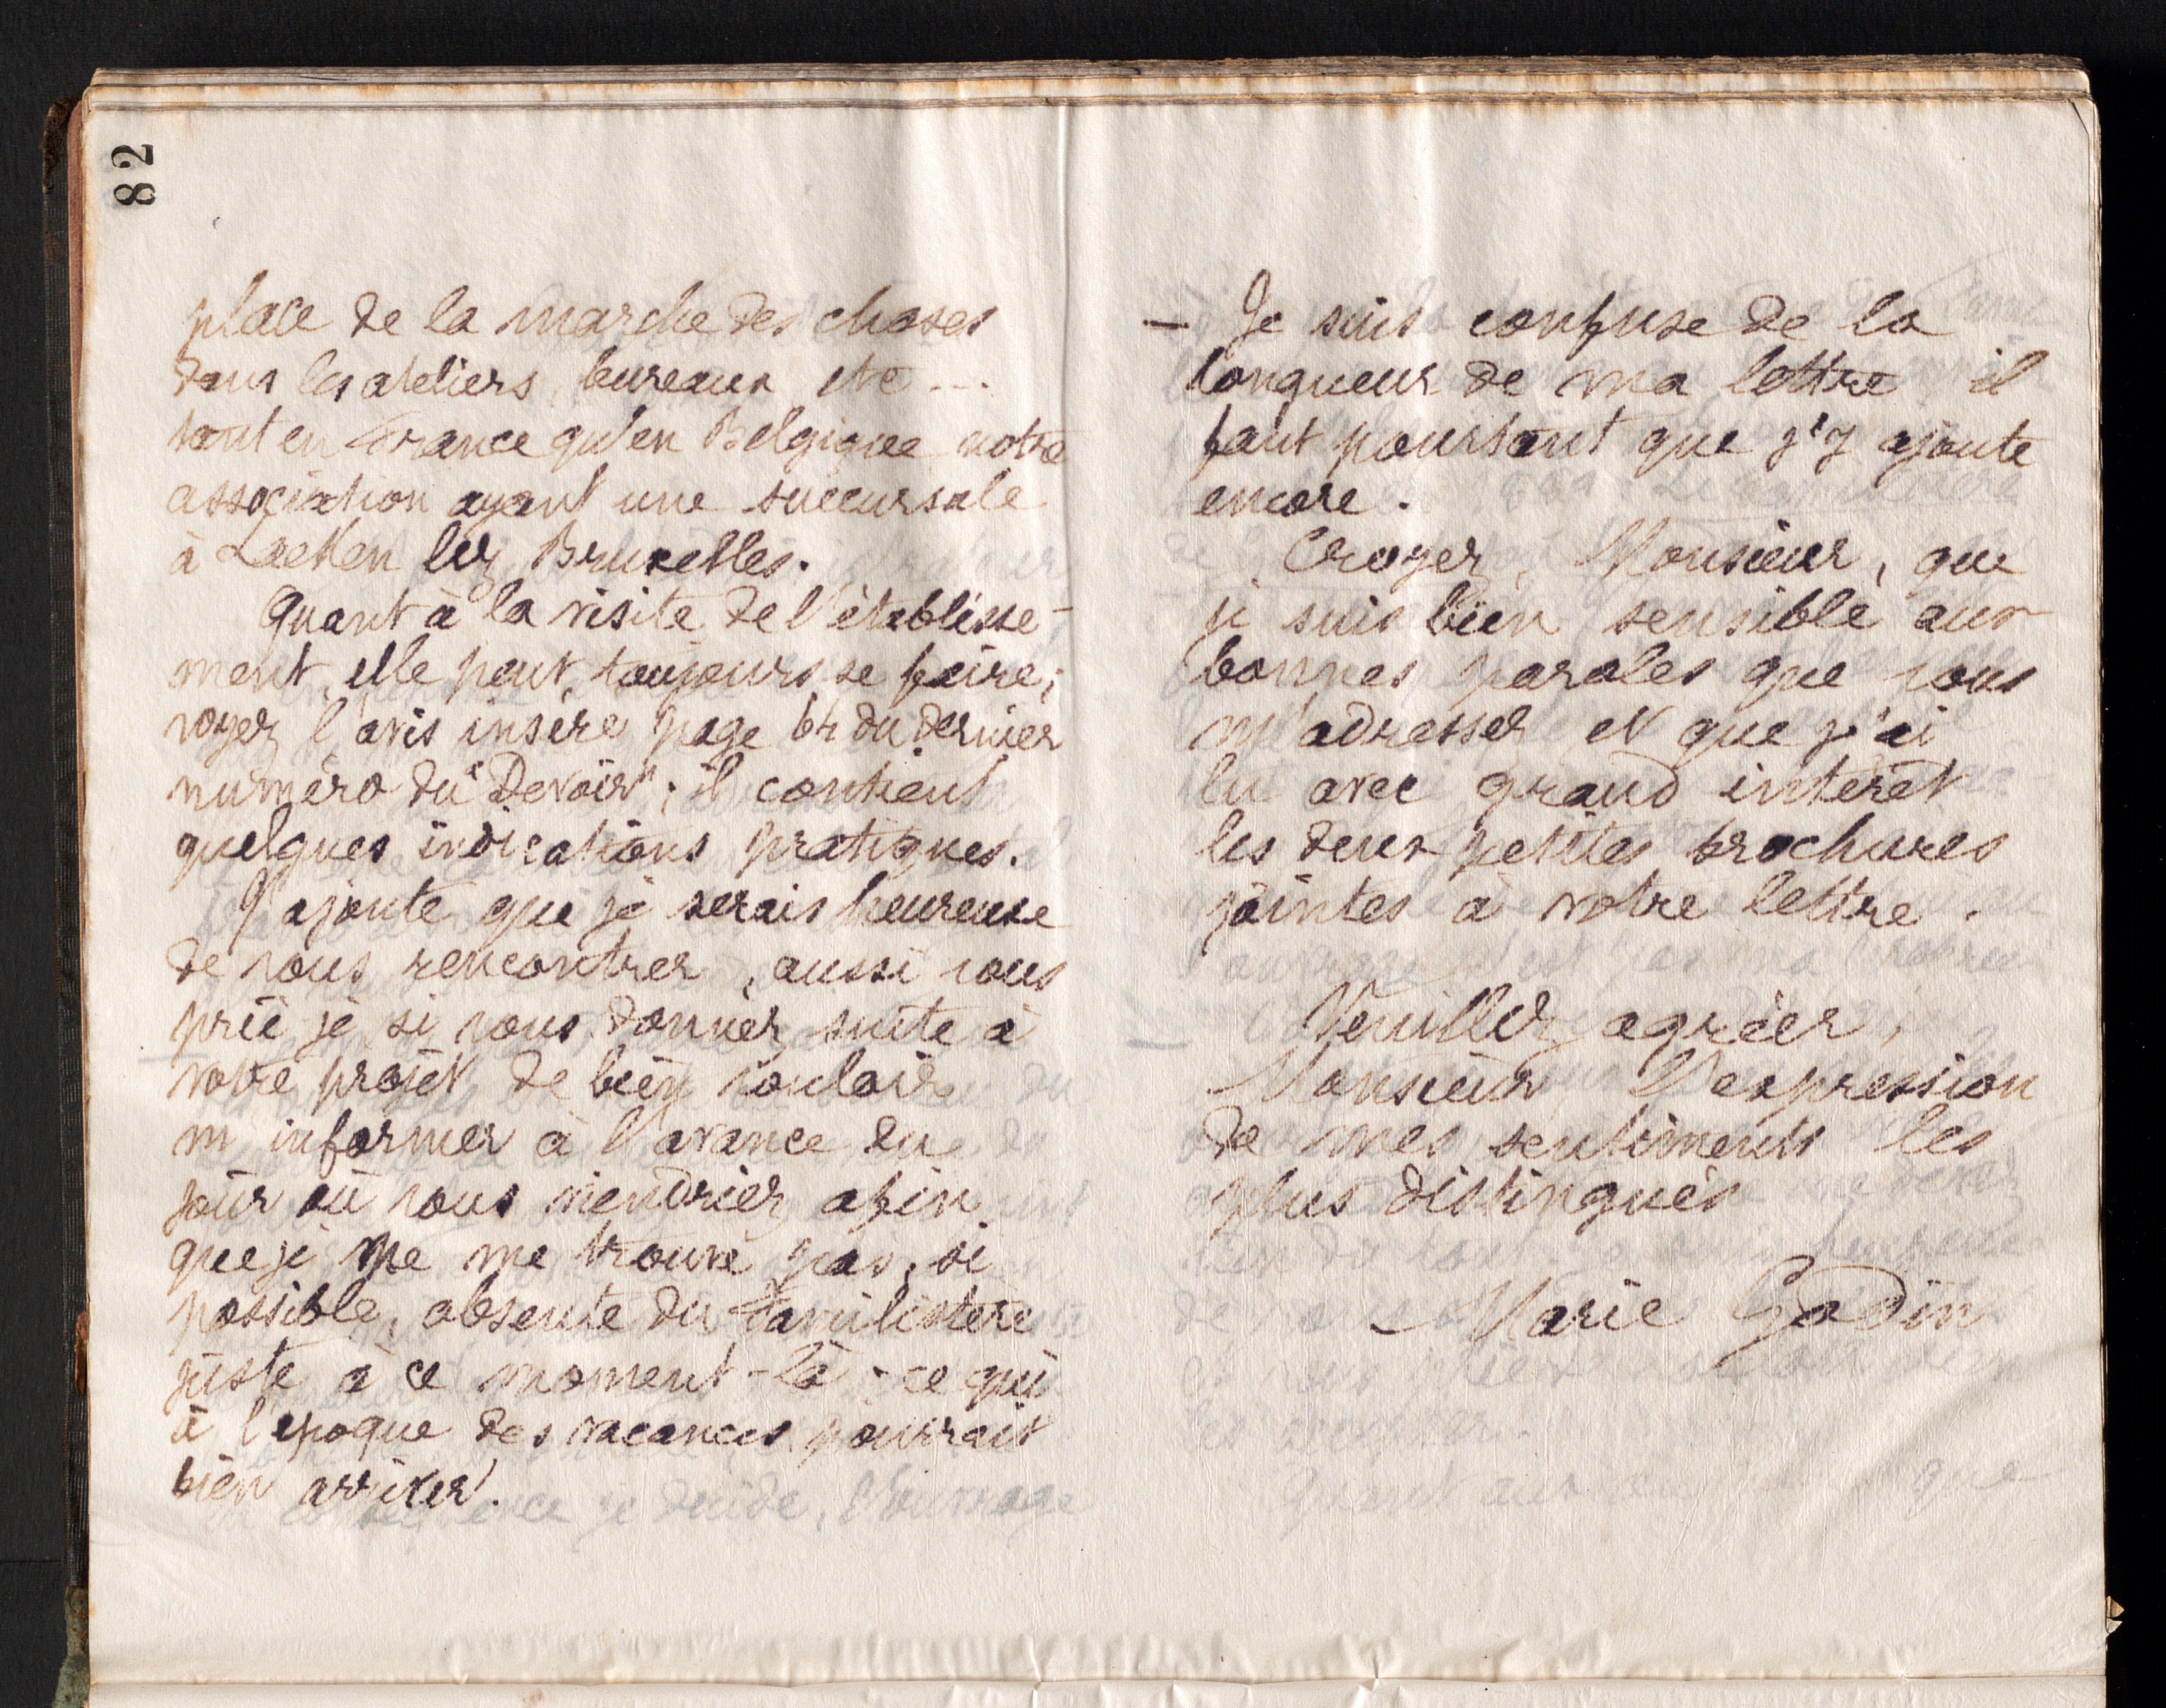 82
place de la marche des choses
dans les ateliers, bureaux etc...
tant en France qu'en Belgique notre
association ayant une succursale
à Laeken lez Bruxelles.
Quant à la visite de l'établisse-
ment, elle peut, toujours se faire;
voyez l'avis inséré page 64 du dernier
numéro du "Devoir"; il contient
quelques indications pratiques.
J'ajoute que je serais heureuse
de vous rencontrer, aussi vous
prié-je si vous donnez suite à
votre projet de bien vouloir
m'informer à l'avance du
jour où vous viendriez afin
que je ne me trouve pas, si
possible, absente du Familistère
juste à ce moment-là; ce qui
à l'époque des vacances pourrait
bien arriver.
- Je suis confuse de la
longueur de ma lettre il
faut pourtant que j'y ajoute
encore.
Croyez, Monsieur, que
je suis bien sensible aux
bonnes paroles que vous
m'adressez et que j'ai
lu avec grand intérêt
les deux petites brochures
jointes à votre lettre.
Veuillez agréer,
Monsieur, l'expression
de mes sentiments les
plus distingués
Marie Godin